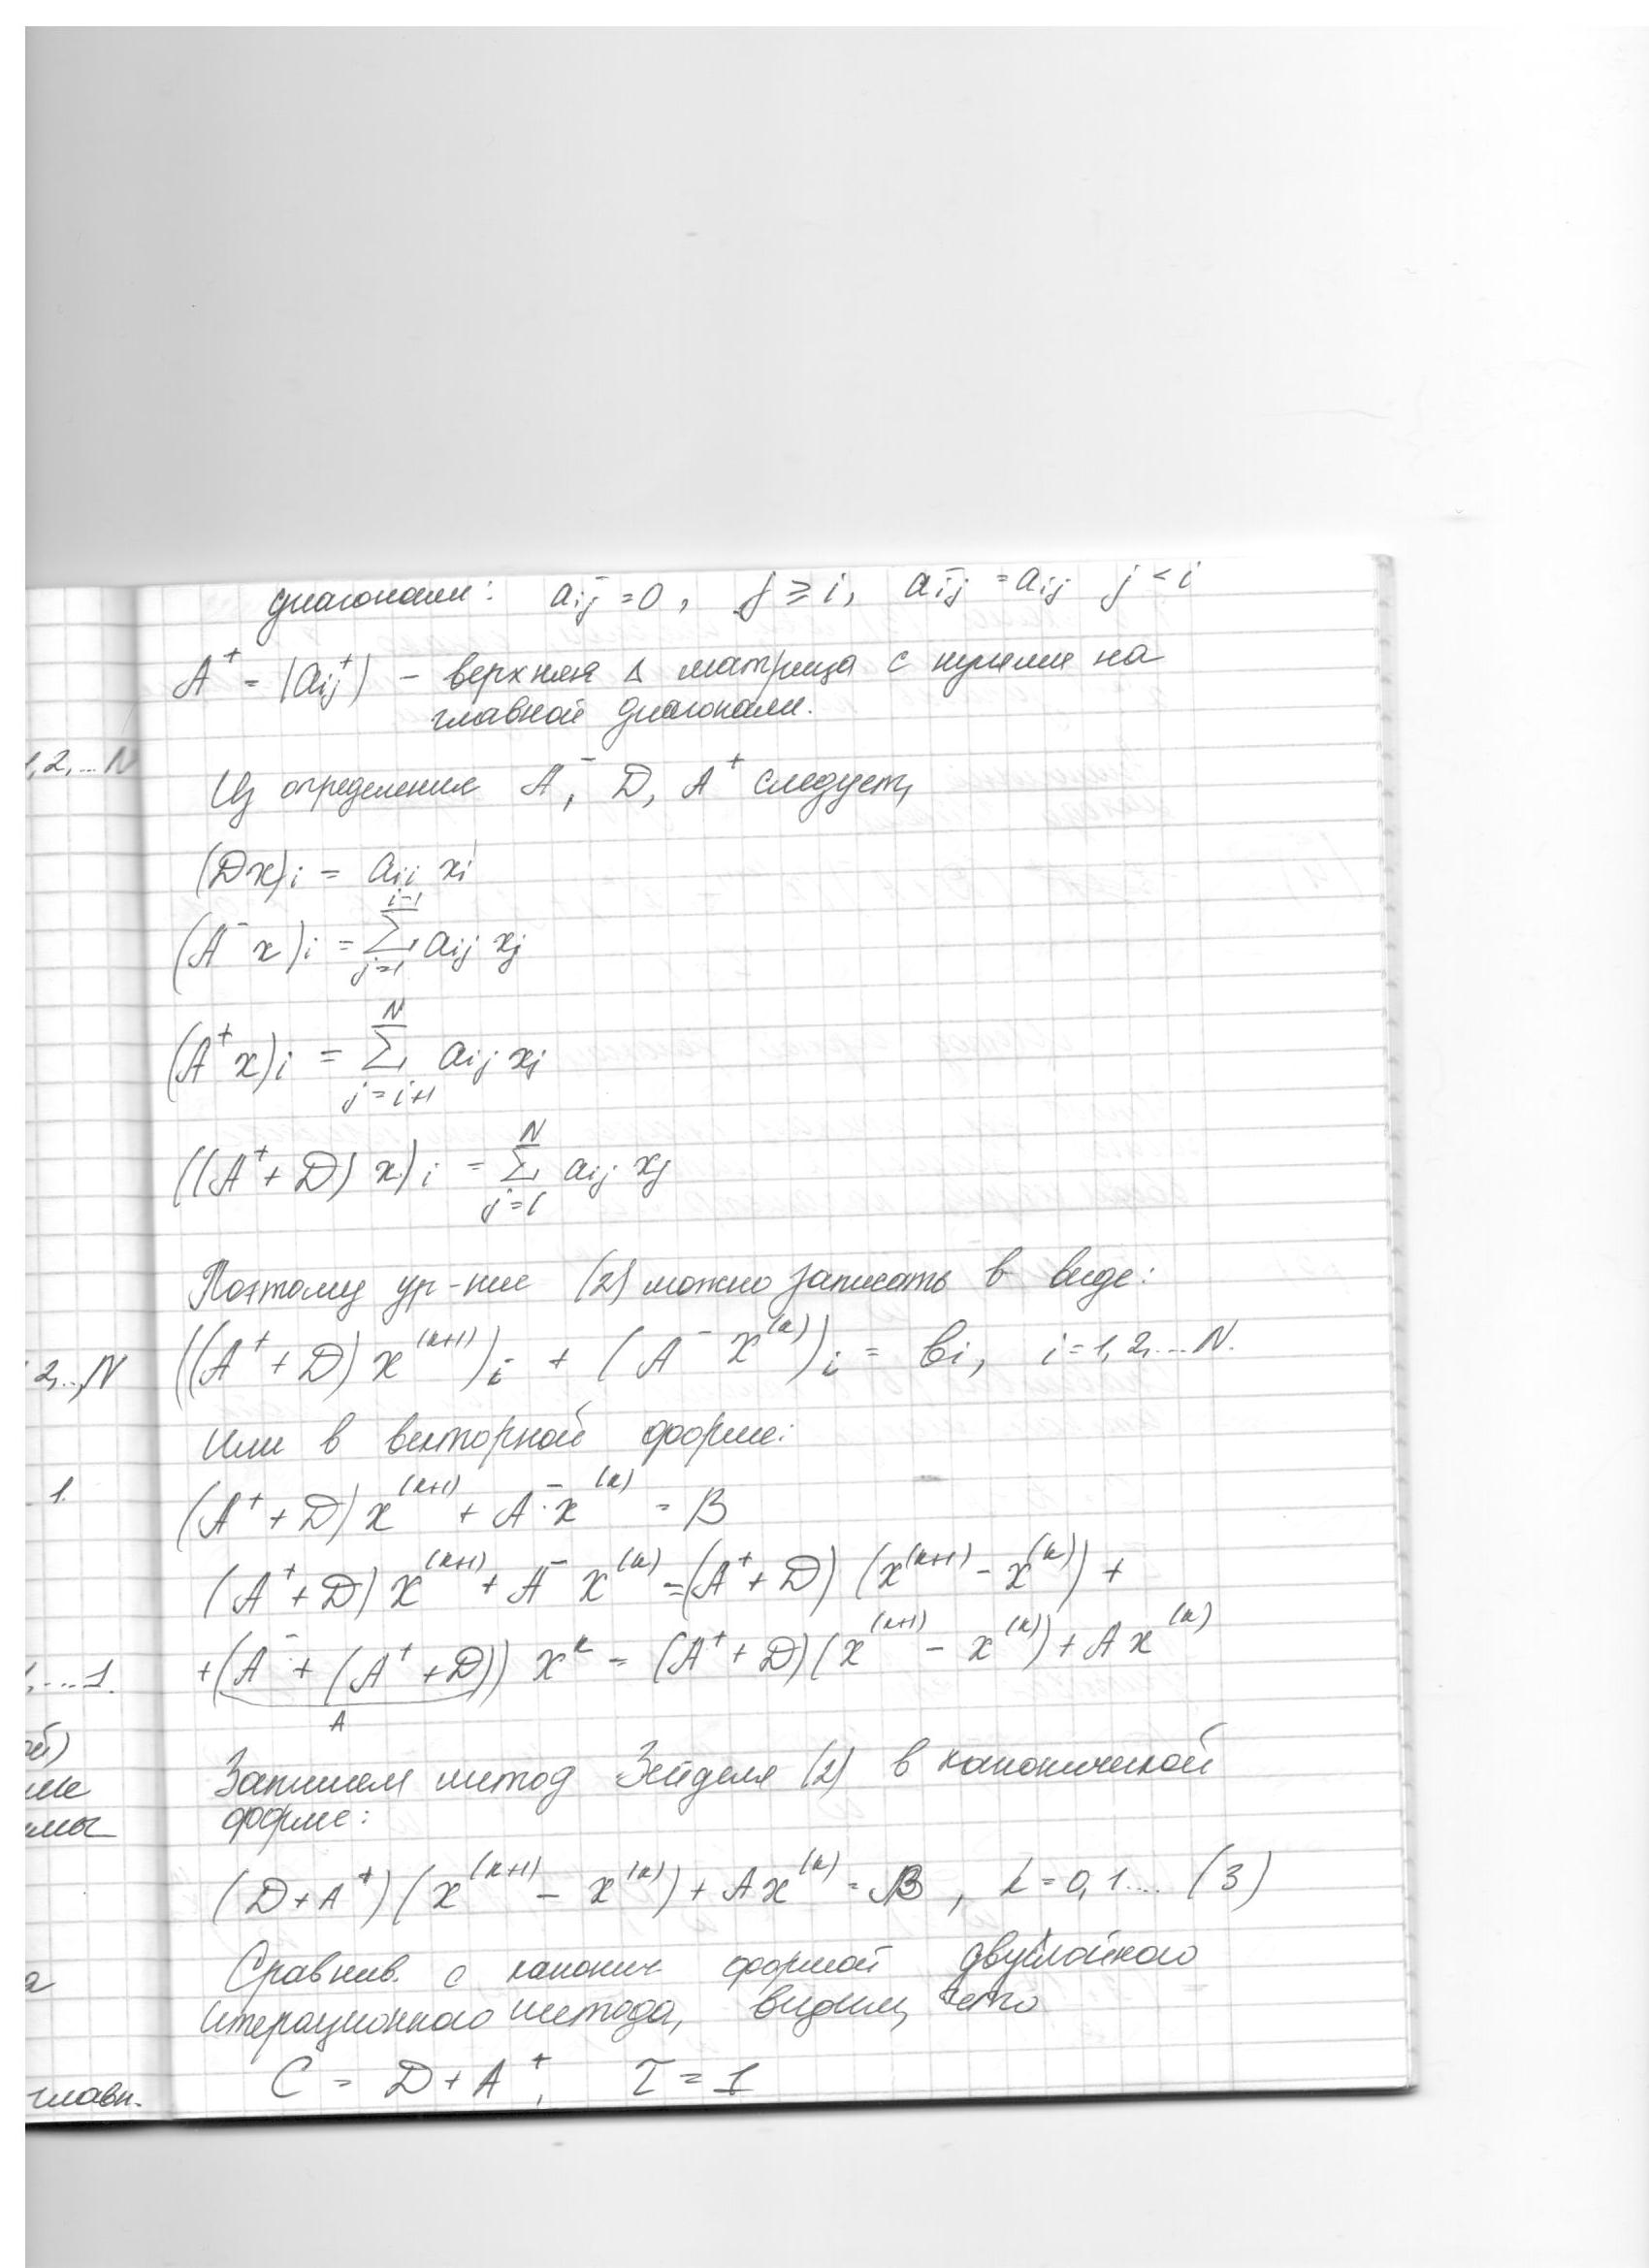 диагонали: aij⁻ = 0, j ≥ i, aij⁻ = aij j < i
A⁺ = (aij⁺) – верхняя Δ матрица с нулями на
главной диагонали.
1,2,...N
Из определения A⁻, D, A⁺ следует,
(Dx)i = aii xi
(A⁻x)i = Σ_{j=1}^{i-1} aij xj
(A⁺x)i = Σ_{j=i+1}^{N} aij xj
((A⁺+D)x)i = Σ_{j=i}^{N} aij xj
Поэтому ур-ние (2) можно записать в виде:
2,..,N
((A⁺+D)x^(k+1))i + (A⁻x^(k))i = bi, i=1,2,...N.
Или в векторной форме:
1.
(A⁺+D)x^(k+1) + A⁻·x^(k) = B
(A⁺+D)x^(k+1) + A⁻x^(k) = (A⁺+D)(x^(k+1) - x^(k)) +
+(A⁻+(A⁺+D))x^k = (A⁺+D)(x^(k+1) - x^(k)) + Ax^(k)
...1.
A
ой)
Запишем метод Зейделя (2) в канонической
форме:
(D+A⁺)(x^(k+1) - x^(k)) + Ax^(k) = B, k=0,1... (3)
Сравнив. с канонич формой двуслойного
а
итерационного метода, видим, что
C = D+A⁺, τ=1
главн.